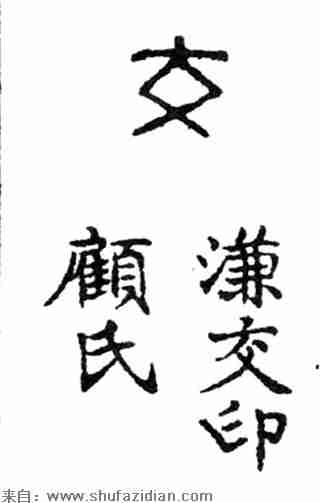 交
溓交印
顧氏
来自：www.shufazidian.com